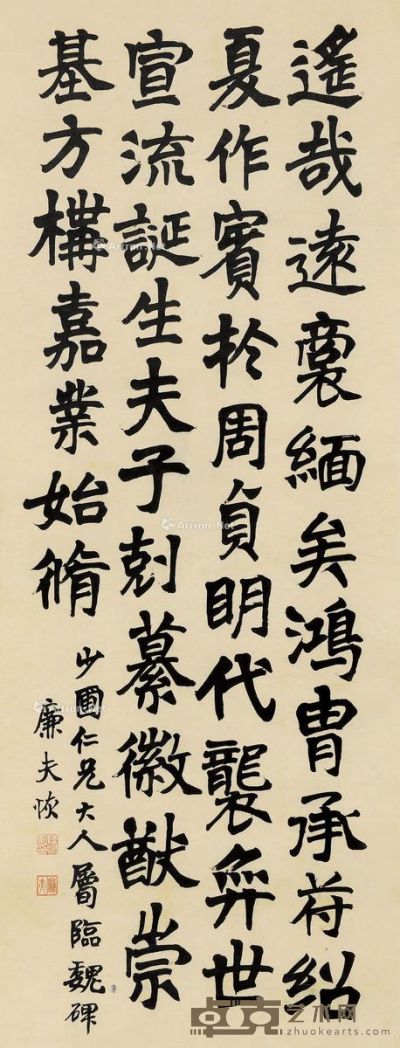 遙哉遠裔緬矣鴻冑承苻紹
夏作賓於周貞明代襲弈世
宣流誕生夫子剋纂徽猷崇
基方構嘉業始脩
少圃仁兄大人屬臨魏碑
廉夫恢
Artron.Net
卓克艺术网
zhuokearts.com